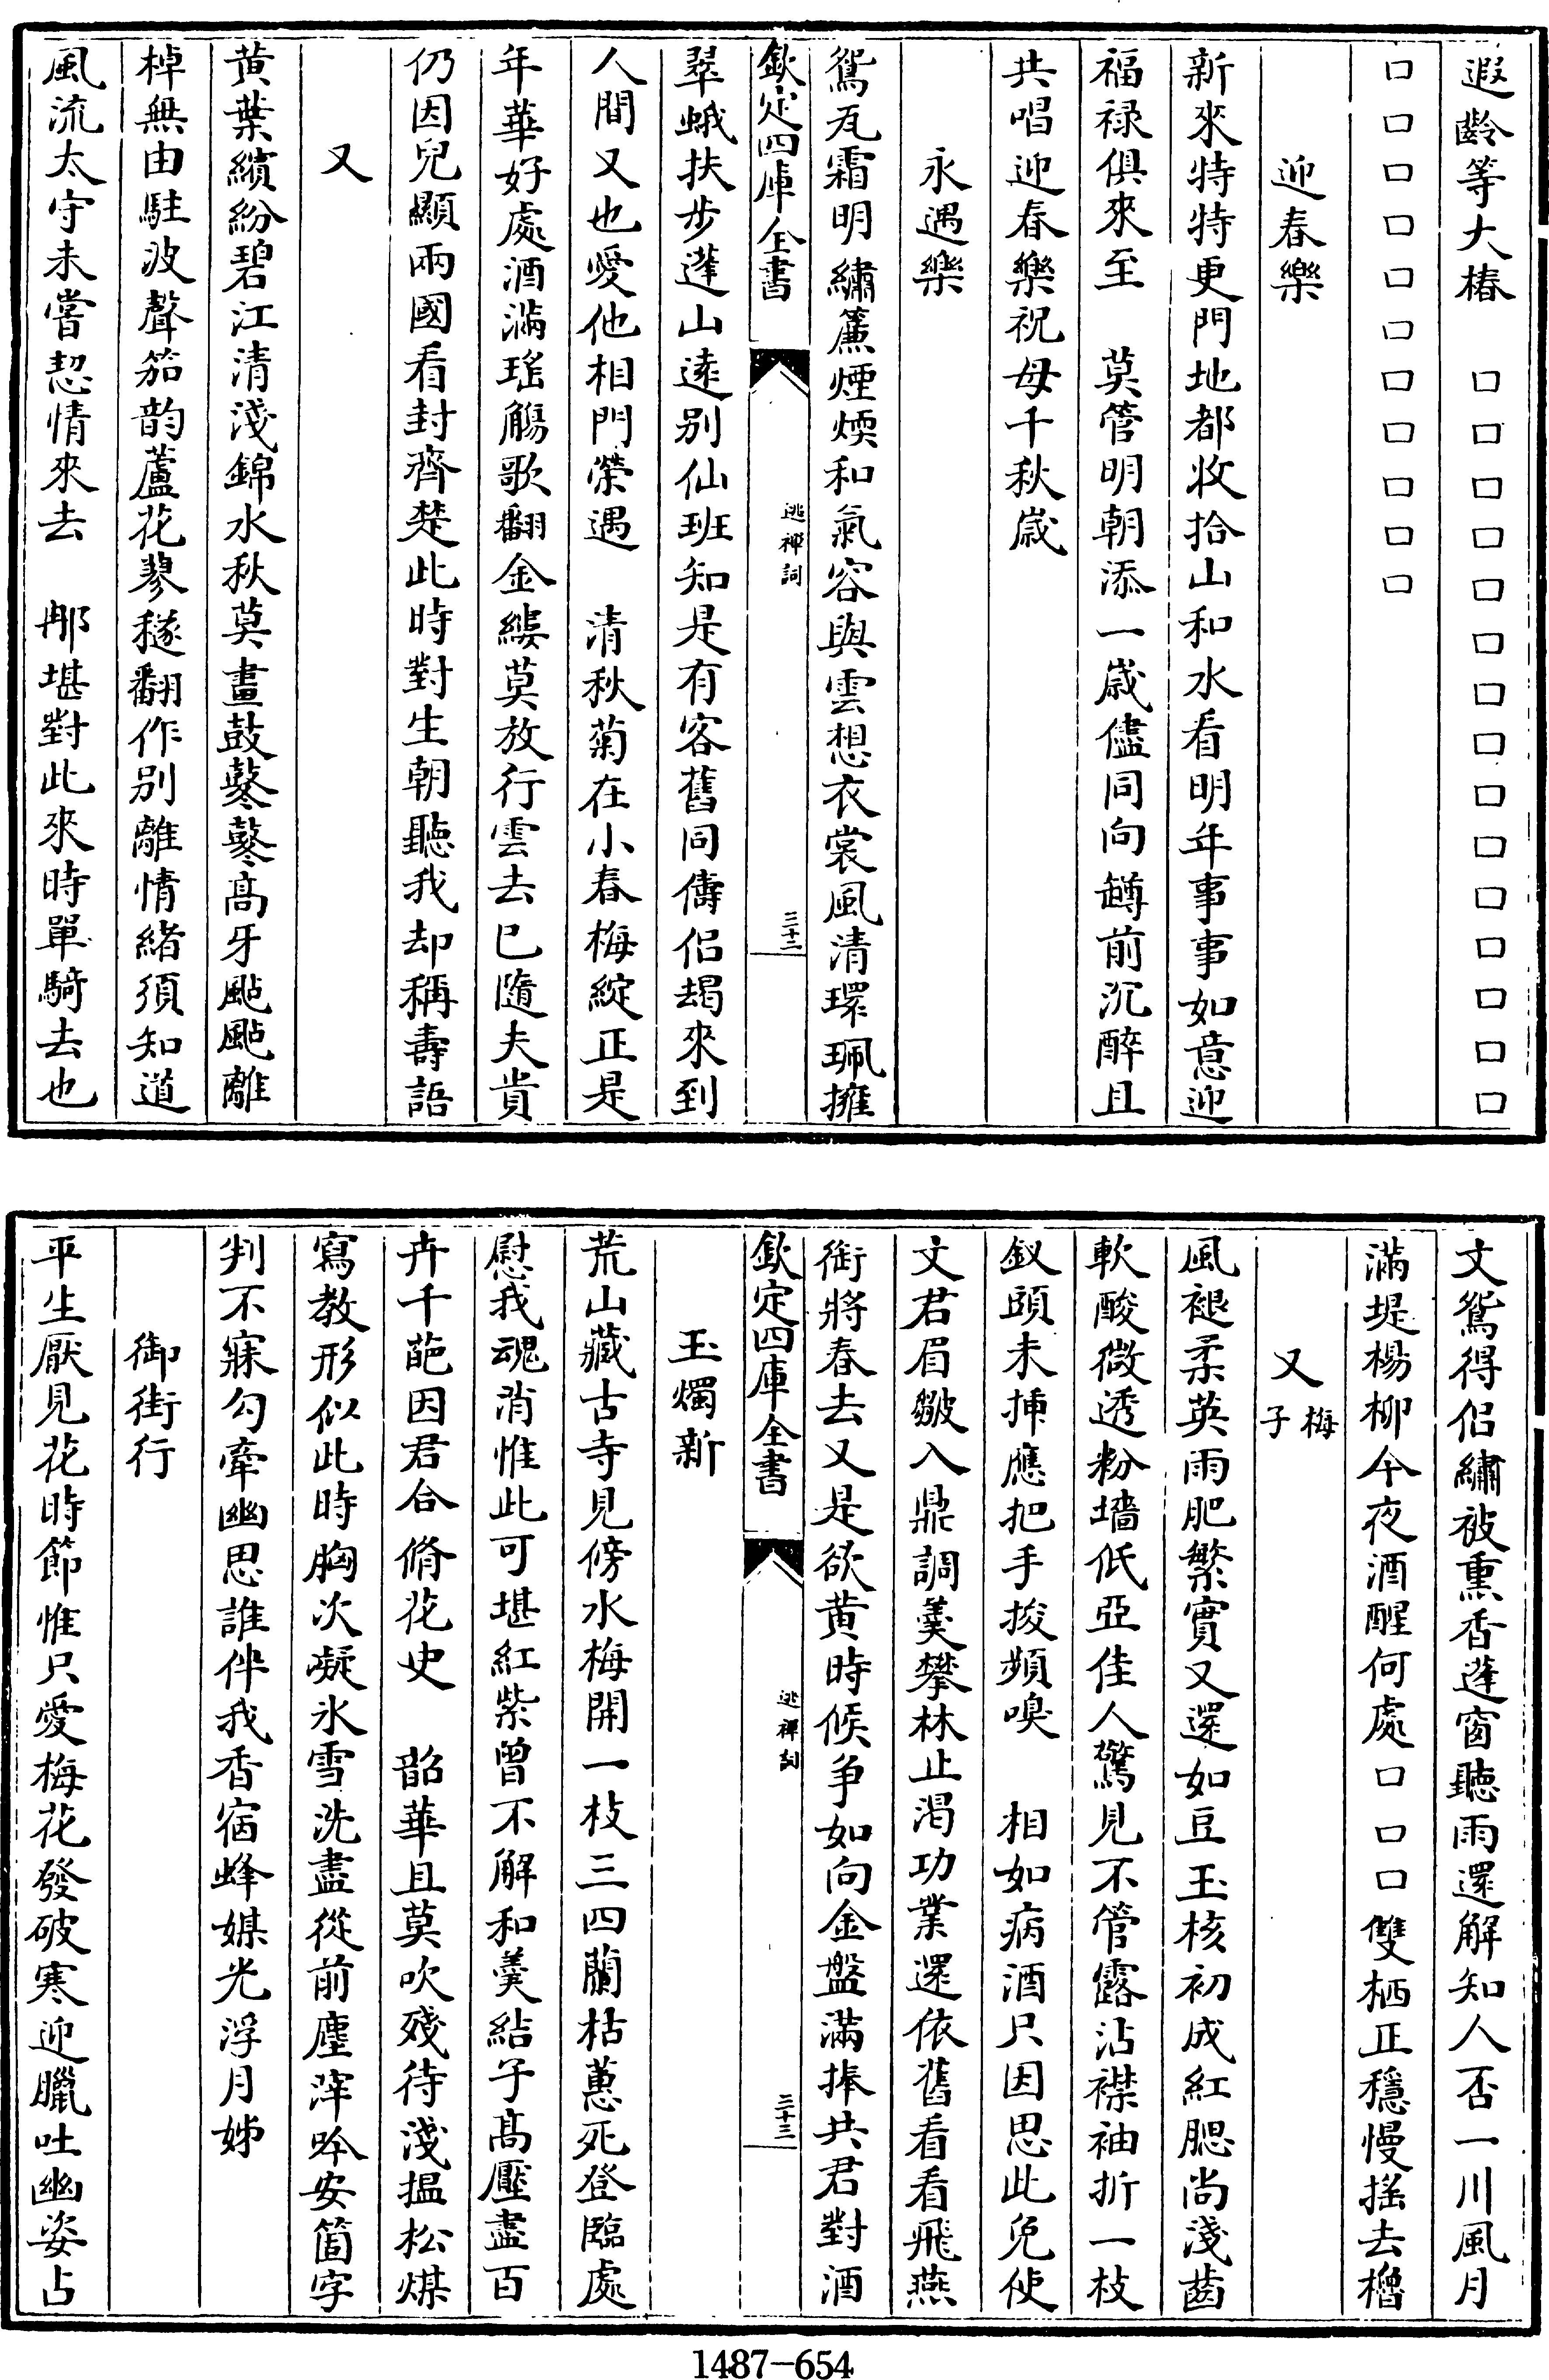 遐齡等大椿　口口口口口口口口口口口口口口口
口口口口口口口口口口口
迎春樂
新來特特更門地都收拾山和水看明年事事如意迎
福祿俱來至　莫管明朝添一歲儘同向罇前沉醉且
共唱迎春樂祝母千秋歲
永遇樂
鴛瓦霜明繡簾煙煗和氣容與雲想衣裳風清環珮擁
欽定四庫全書
逃禪詞
三十二
翠蛾扶步蓬山遠别仙班知是有客舊同儔侣朅來到
人間又也愛他相門榮遇　清秋菊在小春梅綻正是
年華好處酒滿瑤觴歌翻金縷莫放行雲去已隨夫貴
仍因兒顯兩國看封齊楚此時對生朝聽我却稱壽語
又
黄葉繽紛碧江清淺錦水秋莫畫鼓鼕鼕高牙颭颭離
棹無由駐波聲笳韵蘆花蓼穟翻作别離情緒須知道
風流太守未嘗恝情來去　那堪對此來時單騎去也
文鴛得侣繡被熏香蓬窗聽雨還解知人否一川風月
滿堤楊柳今夜酒醒何處口口口雙栖正穩慢搖去櫓
又梅子
風褪柔英雨肥繁實又還如豆玉核初成紅腮尚淺齒
軟酸微透粉墻低亞佳人驚見不管露沾襟袖折一枝
釵頭未揷應把手挼頻嗅　相如病酒只因思此免使
文君眉皺入鼎調羹攀林止渴功業還依舊看看飛燕
銜將春去又是欲黄時候争如向金盤滿捧共君對酒
欽定四庫全書
逃禪詞
三十三
玉燭新
荒山藏古寺見傍水梅開一枝三四蘭枯蕙死登臨處
慰我魂消惟此可堪紅紫曾不解和羹結子高壓盡百
卉千葩因君合脩花史　韶華且莫吹殘待淺揾松煤
寫教形似此時胸次凝氷雪洗盡從前塵滓吟安箇字
判不寐勾牽幽思誰伴我香宿蜂媒光浮月姊
御街行
平生厭見花時節惟只愛梅花發破寒迎臘吐幽姿占
1487-654